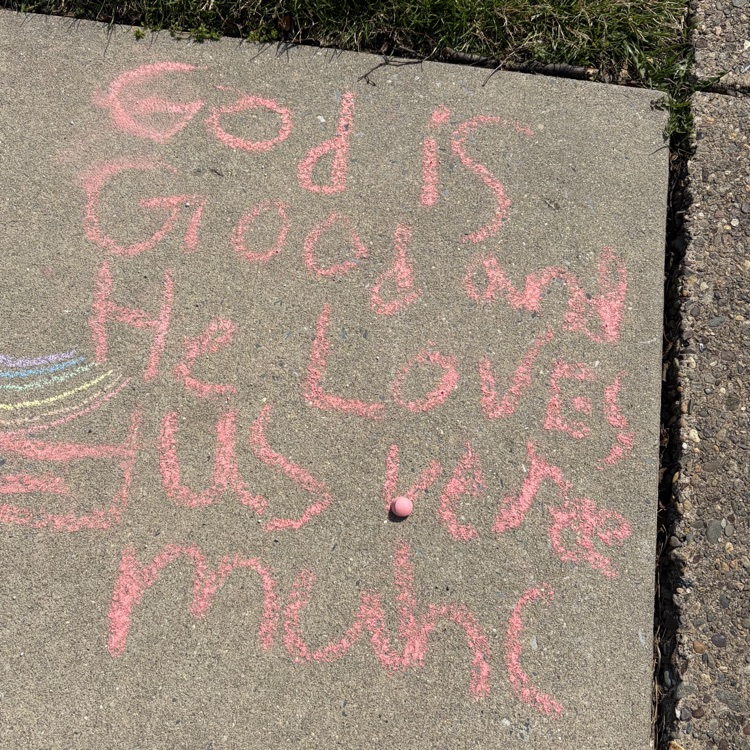 God is
Good and
He LovEs
us vere
muhc